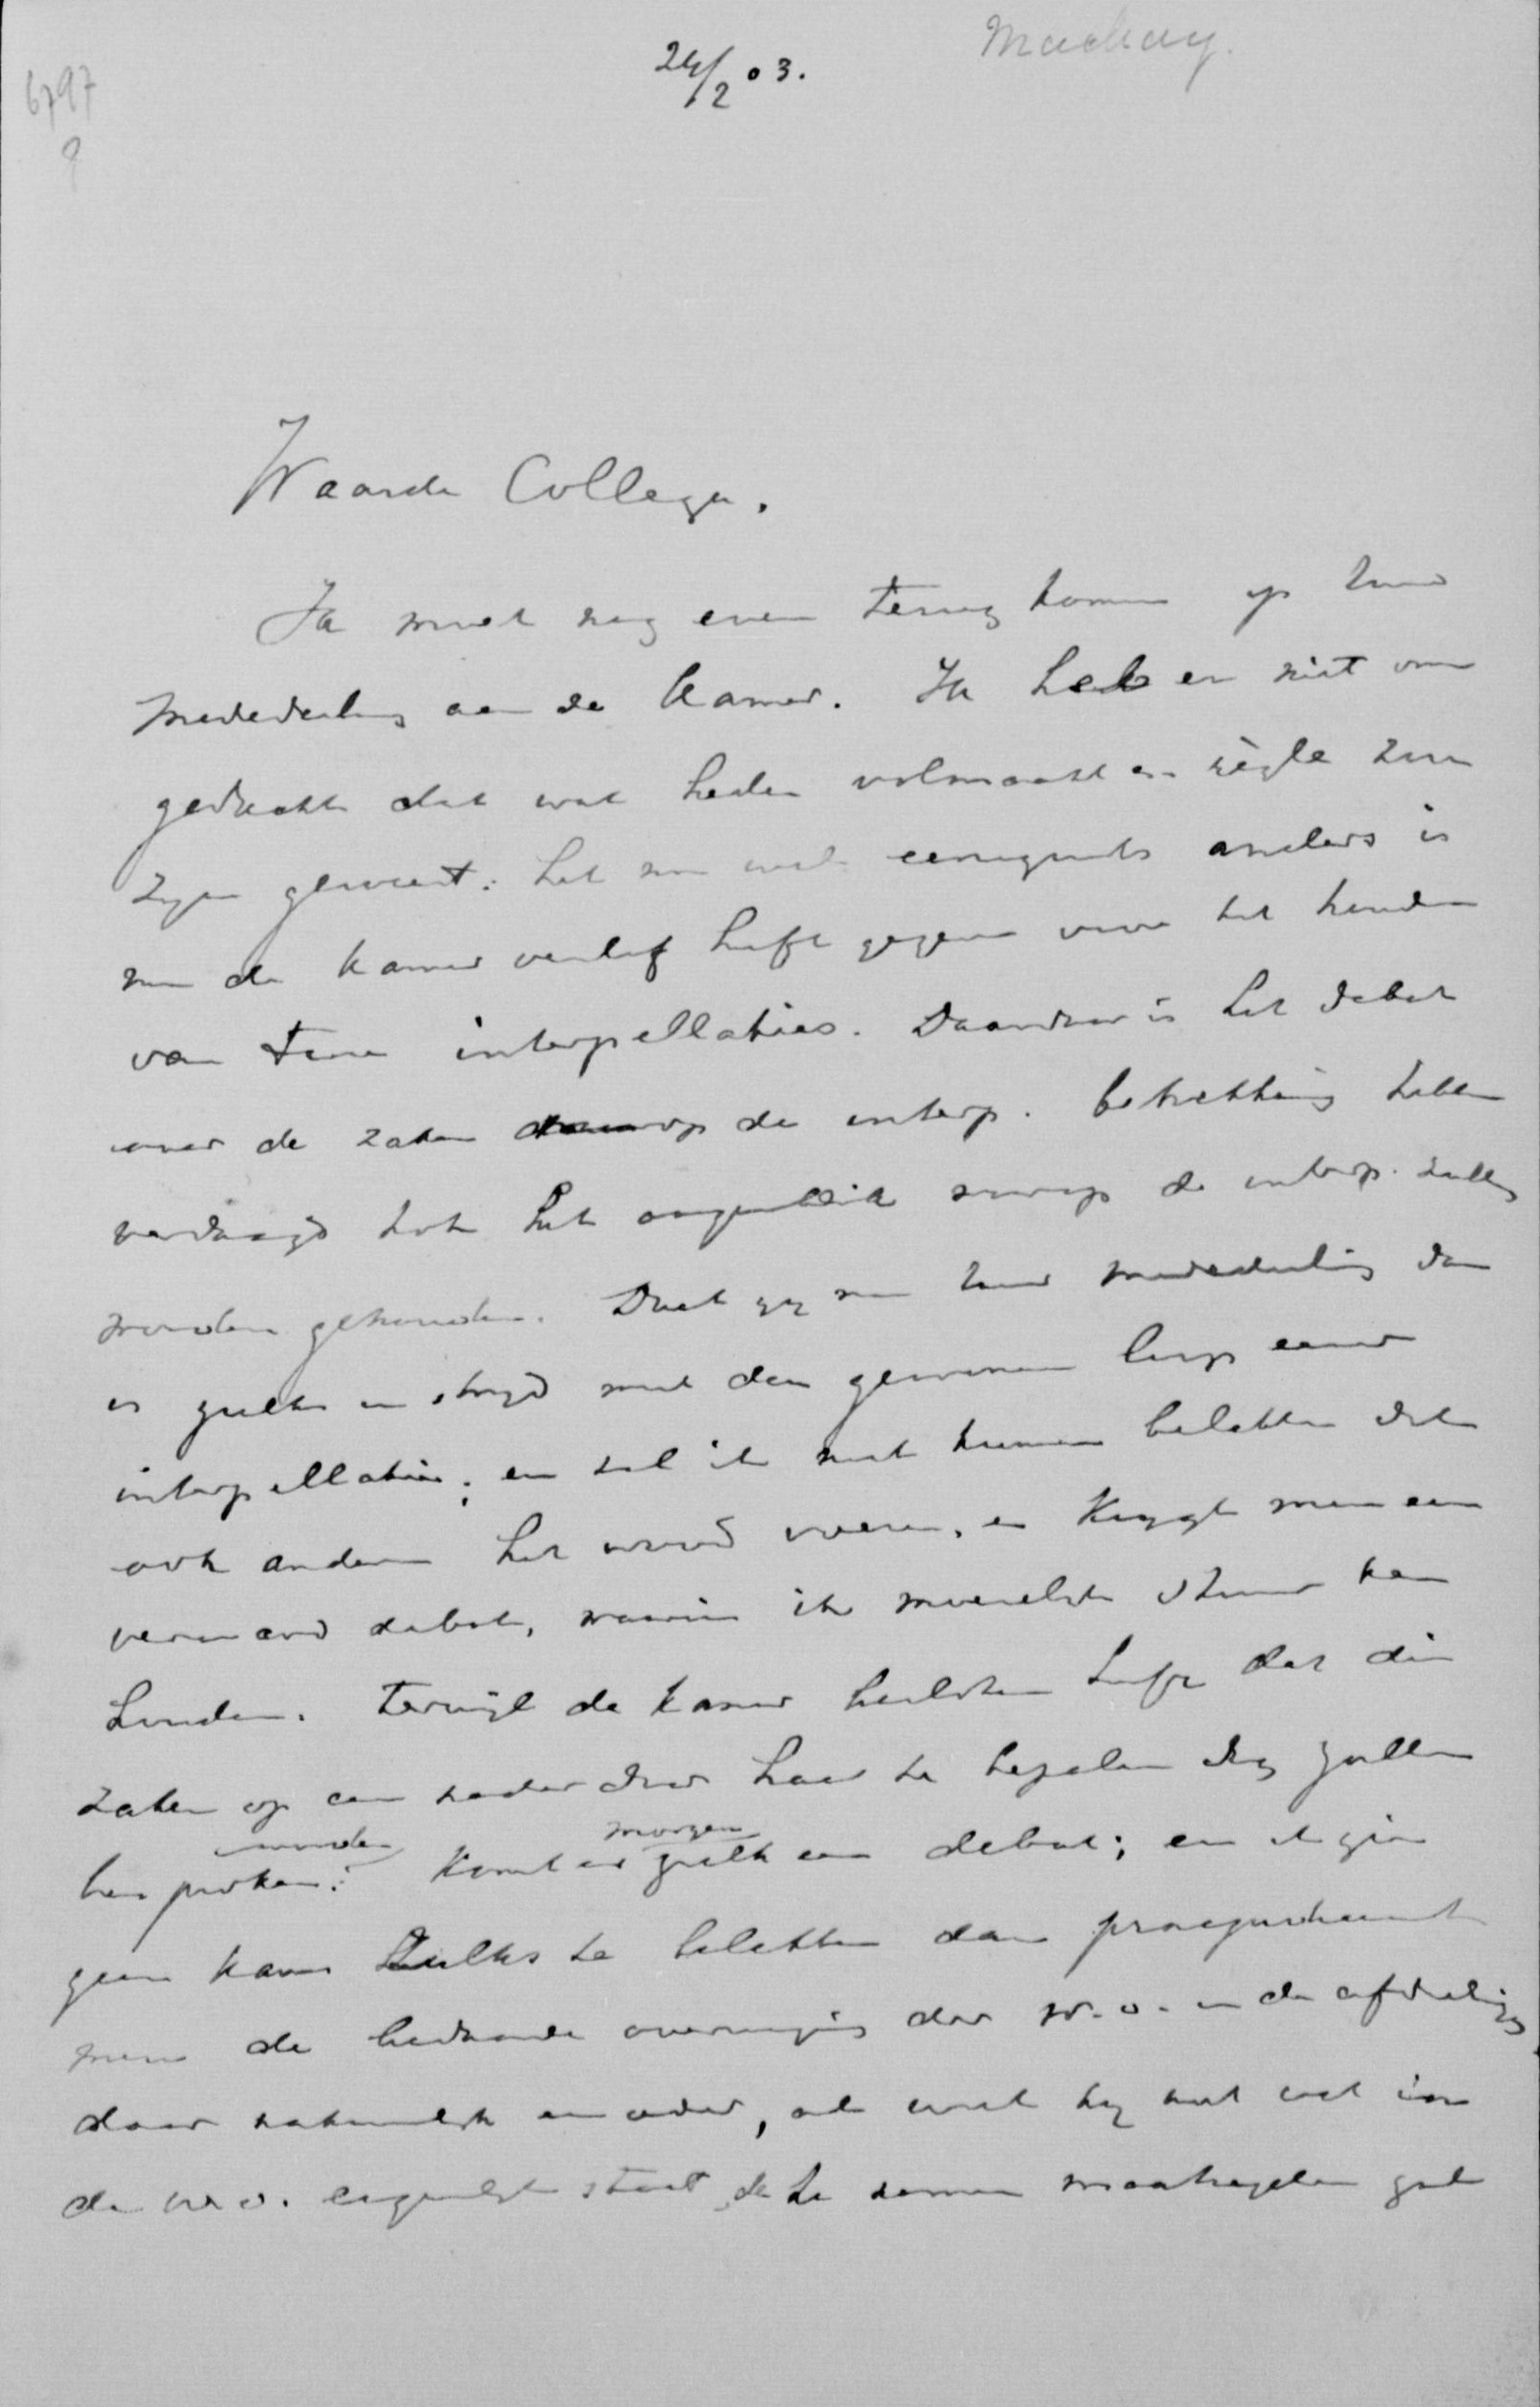 6797
24/2 03.
Mackay.
Waarde Collega.
Ik moet nog even terug komen op Uwe
mededeeling aan de Kamer. Ik heb er niet om
gedacht dat wat heden volmaakt en règle zou
zijn geweest: het nu wel eenigzints anders is
nu de Kamer verlof heeft gegeven voor het houden
van twee interpellaties. Daardoor is het debat
over de zaken waarop de interp. betrekking hebben
verdaagd tot het oogenblik waarop de interp. zullen
worden gehouden. Doet gij nu Uwe mededeeling dan
is zulks in strijd met den gewonen loop eener
interpellatie; en zal ik niet kunnen beletten dat
ook anderen het woord voeren, en krijgt men een
verward debat, waarin ik moeielijk stuur kan
houden. Terwijl de Kamer besloten heeft dat die
zaken op een nader door haar te bepalen dag zullen
worden morgen
besproken: komt er zulk een debat; en ik zie
geen kans zulks te beletten dan praejudicieert
men de bedaarde overweging der w. o. in de afdeelingen
daar natuurlijk een ieder, al weet hij niet wat in
de w. o. eigenlijk staat, de te nemen maatregelen zal